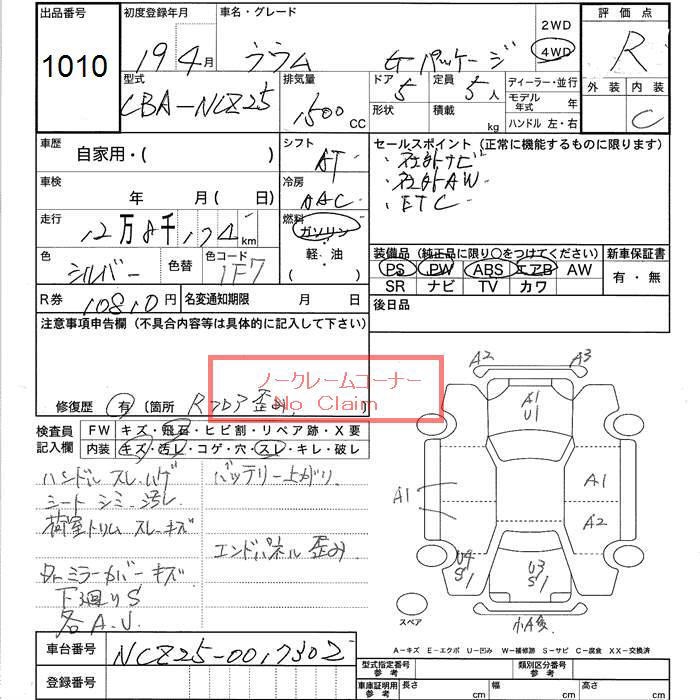 出品番号
1010
初度登録年月
19 4月
車名・グレード
ラウム Gパッケージ
2WD
4WD
評価点
R
外装 内装
C
型式
CBA-NCZ25
排気量
1500 CC
ドア
5
定員
5人
形状
積載
kg
ディーラー・並行
モデル年式 年
ハンドル 左・右
車歴
自家用・( )
シフト
AT
車検
年 月( 日)
冷房
AAC
走行
12万8千124km
燃料
ガソリン
軽・油
( )
色
シルバー
色替
色コード
1F7
R券
10810円
名変通知期限 月 日
セールスポイント(正常に機能するものに限ります)
・社外ナビ
・社外AW
・ETC
装備品(純正品に限り○をつけてください)
PS PW ABS エアB AW
SR ナビ TV カワ
新車保証書
有・無
後日品
注意事項申告欄(不具合内容等は具体的に記入して下さい)
ノークレームコーナー
No Claim
修復歴 有 〔箇所 Rフロア歪み
検査員記入欄
FW キズ・飛石・ヒビ割・リペア跡・X要
内装 キズ・汚レ・コゲ・穴・スレ・キレ・破レ
ハンドル スレ.ハゲ
バッテリー上がり
シート シミ.汚レ
荷室トリム スレ.キズ
エンドパネル 歪み
ミラーカバー キズ
下廻りS
各A.U
A2 A3
A1
U1
A1
A1
A2
U4
S1
U3
S1
スペア
小A多
A-キズ E-エクボ U-凹み W-補修跡 S-サビ C-腐食 XX-交換済
車台番号
NCZ25-0017302
登録番号
型式指定番号
参考
類別区分番号
参考
車庫証明用
参考
長さ cm
幅 cm
高さ cm